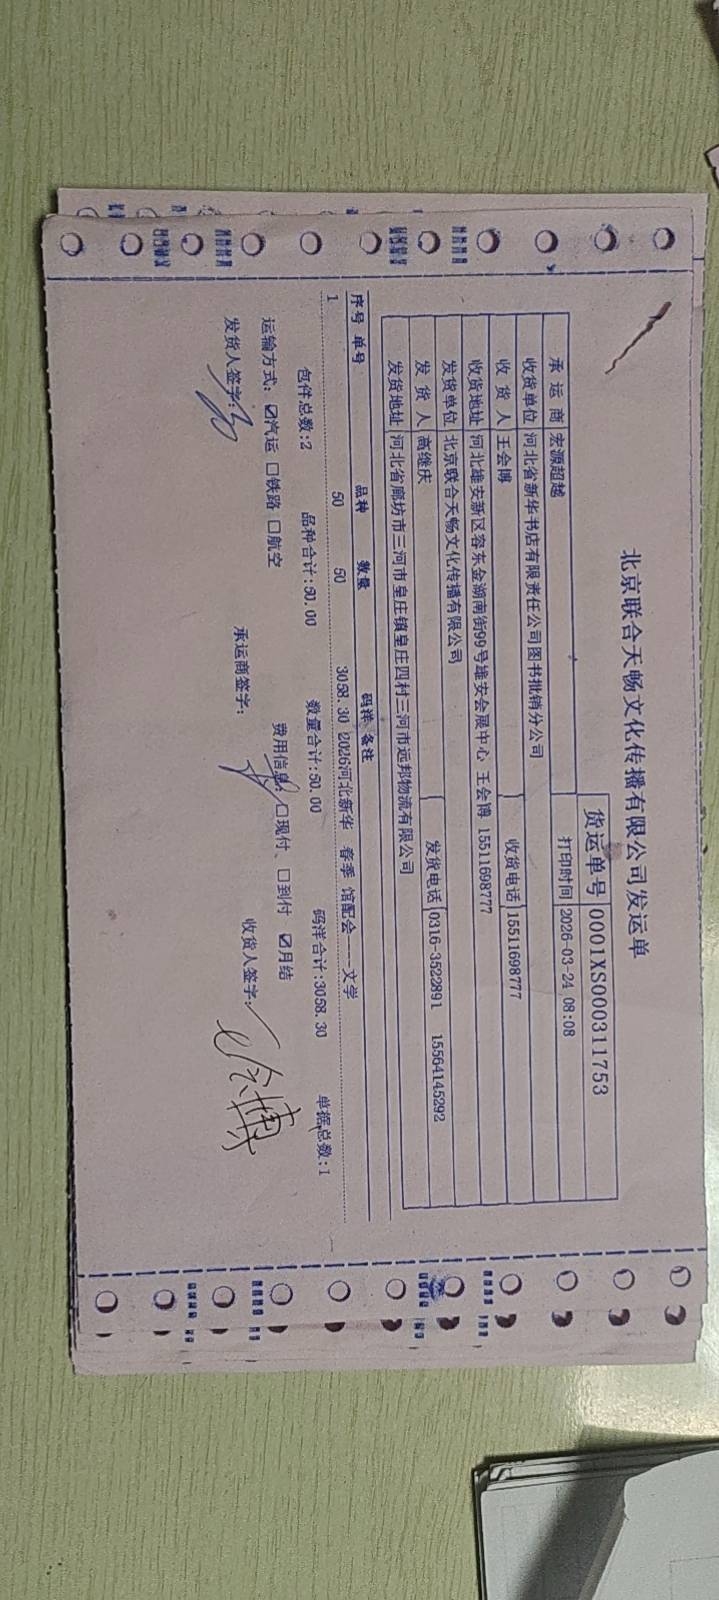 北京联合天畅文化传播有限公司发运单
货运单号 0001XS000311753
承运商 宏源超越 打印时间 2026-03-24 08:08
收货单位 河北省新华书店有限责任公司图书批销分公司
收货人 王会博 收货电话 15511698777
收货地址 河北雄安新区容东金湖南街99号雄安会展中心 王会博 15511698777
发货单位 北京联合天畅文化传播有限公司
发货人 高继庆 发货电话 0316-3522891 15564145292
发货地址 河北省廊坊市三河市皇庄镇皇庄四村三河市远邦物流有限公司
序号 单号 品种 数量 码洋 备注
1 50 50 3058.30 2026河北新华 春季 馆配会---文学
包件总数:2 品种合计:50.00 数量合计:50.00 码洋合计:3058.30 单据总数:1
运输方式: ☑汽运 □铁路 □航空 费用信息: □现付、 □到付 ☑月结
发货人签字: 承运商签字: 收货人签字: 王会博